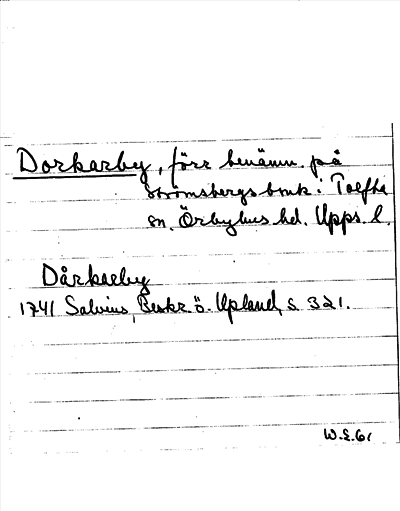 Dorkarby, förr benämn. på
Strömsbergs bruk i Tolfta
sn. Örbyhus hd. Upps. l.
Dårkarby
1741 Salvius, Beskr. ö. Upland, s. 321.
W.E.61